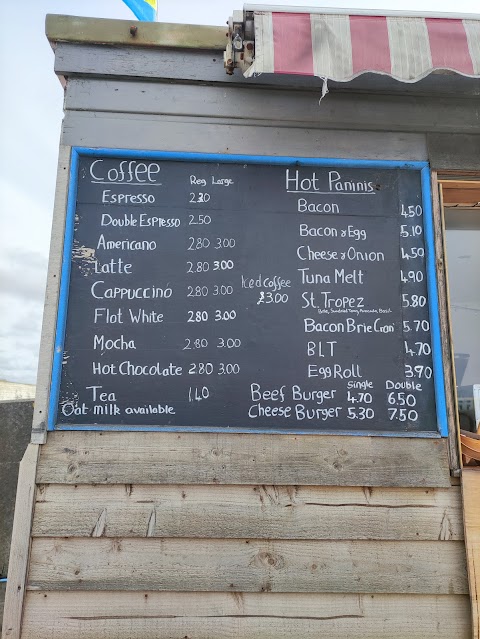 Coffee Reg Large
Espresso 2.20
Double Espresso 2.50
Americano 2.80 3.00
Latte 2.80 3.00
Cappuccino 2.80 3.00
Flat White 2.80 3.00
Mocha 2.80 3.00
Hot Chocolate 2.80 3.00
Tea 1.40
Oat milk available
Iced coffee
£3.00
Hot Paninis
Bacon 4.50
Bacon & Egg 5.10
Cheese & Onion 4.50
Tuna Melt 4.90
St. Tropez 5.80
Bacon Brie Cran 5.70
BLT 4.70
Egg Roll 3.90
Single Double
Beef Burger 4.70 6.50
Cheese Burger 5.30 7.50